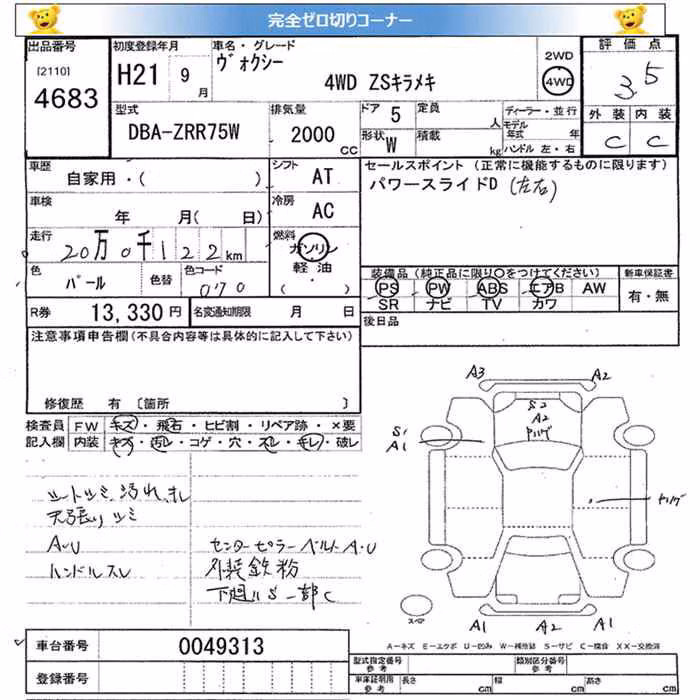 完全ゼロ切りコーナー
出品番号
[2110]
4683
初度登録年月
H21 9月
車名・グレード
ヴォクシー
4WD ZSキラメキ
2WD
4WD
評価点
3.5
外装 内装
C C
型式
DBA-ZRR75W
排気量
2000 CC
ドア 5
形状 W
定員 人
積載 kg
ディーラー・並行
モデル年式 年
ハンドル 左・右
車歴
自家用・( )
シフト AT
車検
年 月( 日)
冷房 AC
走行
20万0千122km
燃料
ガソリン
軽油
( )
色
パール
色替
色コード
070
R券 13,330円
名変通知期限 月 日
セールスポイント (正常に機能するものに限ります)
パワースライドD (左右)
装備品 (純正品に限り○をつけてください)
PS PW ABS エアB AW
SR ナビ TV カワ
新車保証書
有・無
後日品
注意事項申告欄 (不具合内容等は具体的に記入して下さい)
修復歴 有 〔箇所 〕
検査員記入欄
FW キズ・飛石・ヒビ割・リペア跡・×要
内装 キズ・汚レ・コゲ・穴・スレ・キレ・破レ
シートツミ 汚れ キレ
天張リツミ
A・U
ハンドルスレ
センターピラーベルトA・U
外装鉄粉
下廻りS 一部C
A3 A2
S2
A2
S1
A1
A1 A2 A1
スペア
A-キズ E-エクボ U-凹み W-補修跡 S-サビ C-腐食 XX-交換済
車台番号 0049313
登録番号
型式指定番号
参考
類別区分番号
参考
車庫証明用
参考
長さ cm
幅 cm
高さ cm